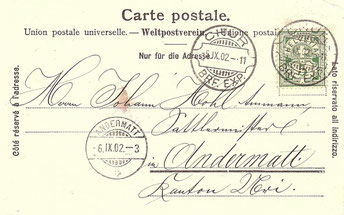 Carte postale.
Union postale universelle. — Weltpostverein. — Unione postale
Nur für die Adresse.
CHUR
IX.02.-11
BRF. EXP.
Côté réservé à l'adresse.
Lato riservato all indirizzo.
Herrn Johann Ammann
Sattlermeister
in Andermatt.
Kanton Uri.
ANDERMATT
6.IX.02.-3